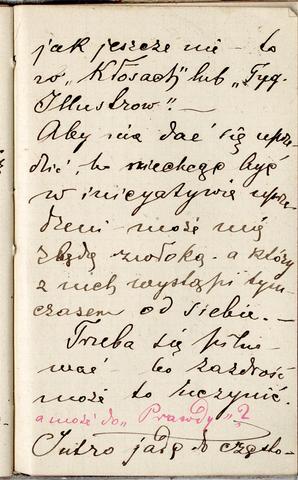 jak jeszcze nie – to
w „Kłosach" lub „Tyg.
Illustrow". –
Aby nie dać się uprze-
dzić, bo niechcąc być
w inicyatywie uprze-
dzeni – może mię
zbędą zwłoką – a który
z nich wystąpi tym-
czasem od siebie. –
Trzeba się pilno-
wać – bo zazdrość
może to uczynić.
a może do „Prawdy"?
Jutro jadę do Często-